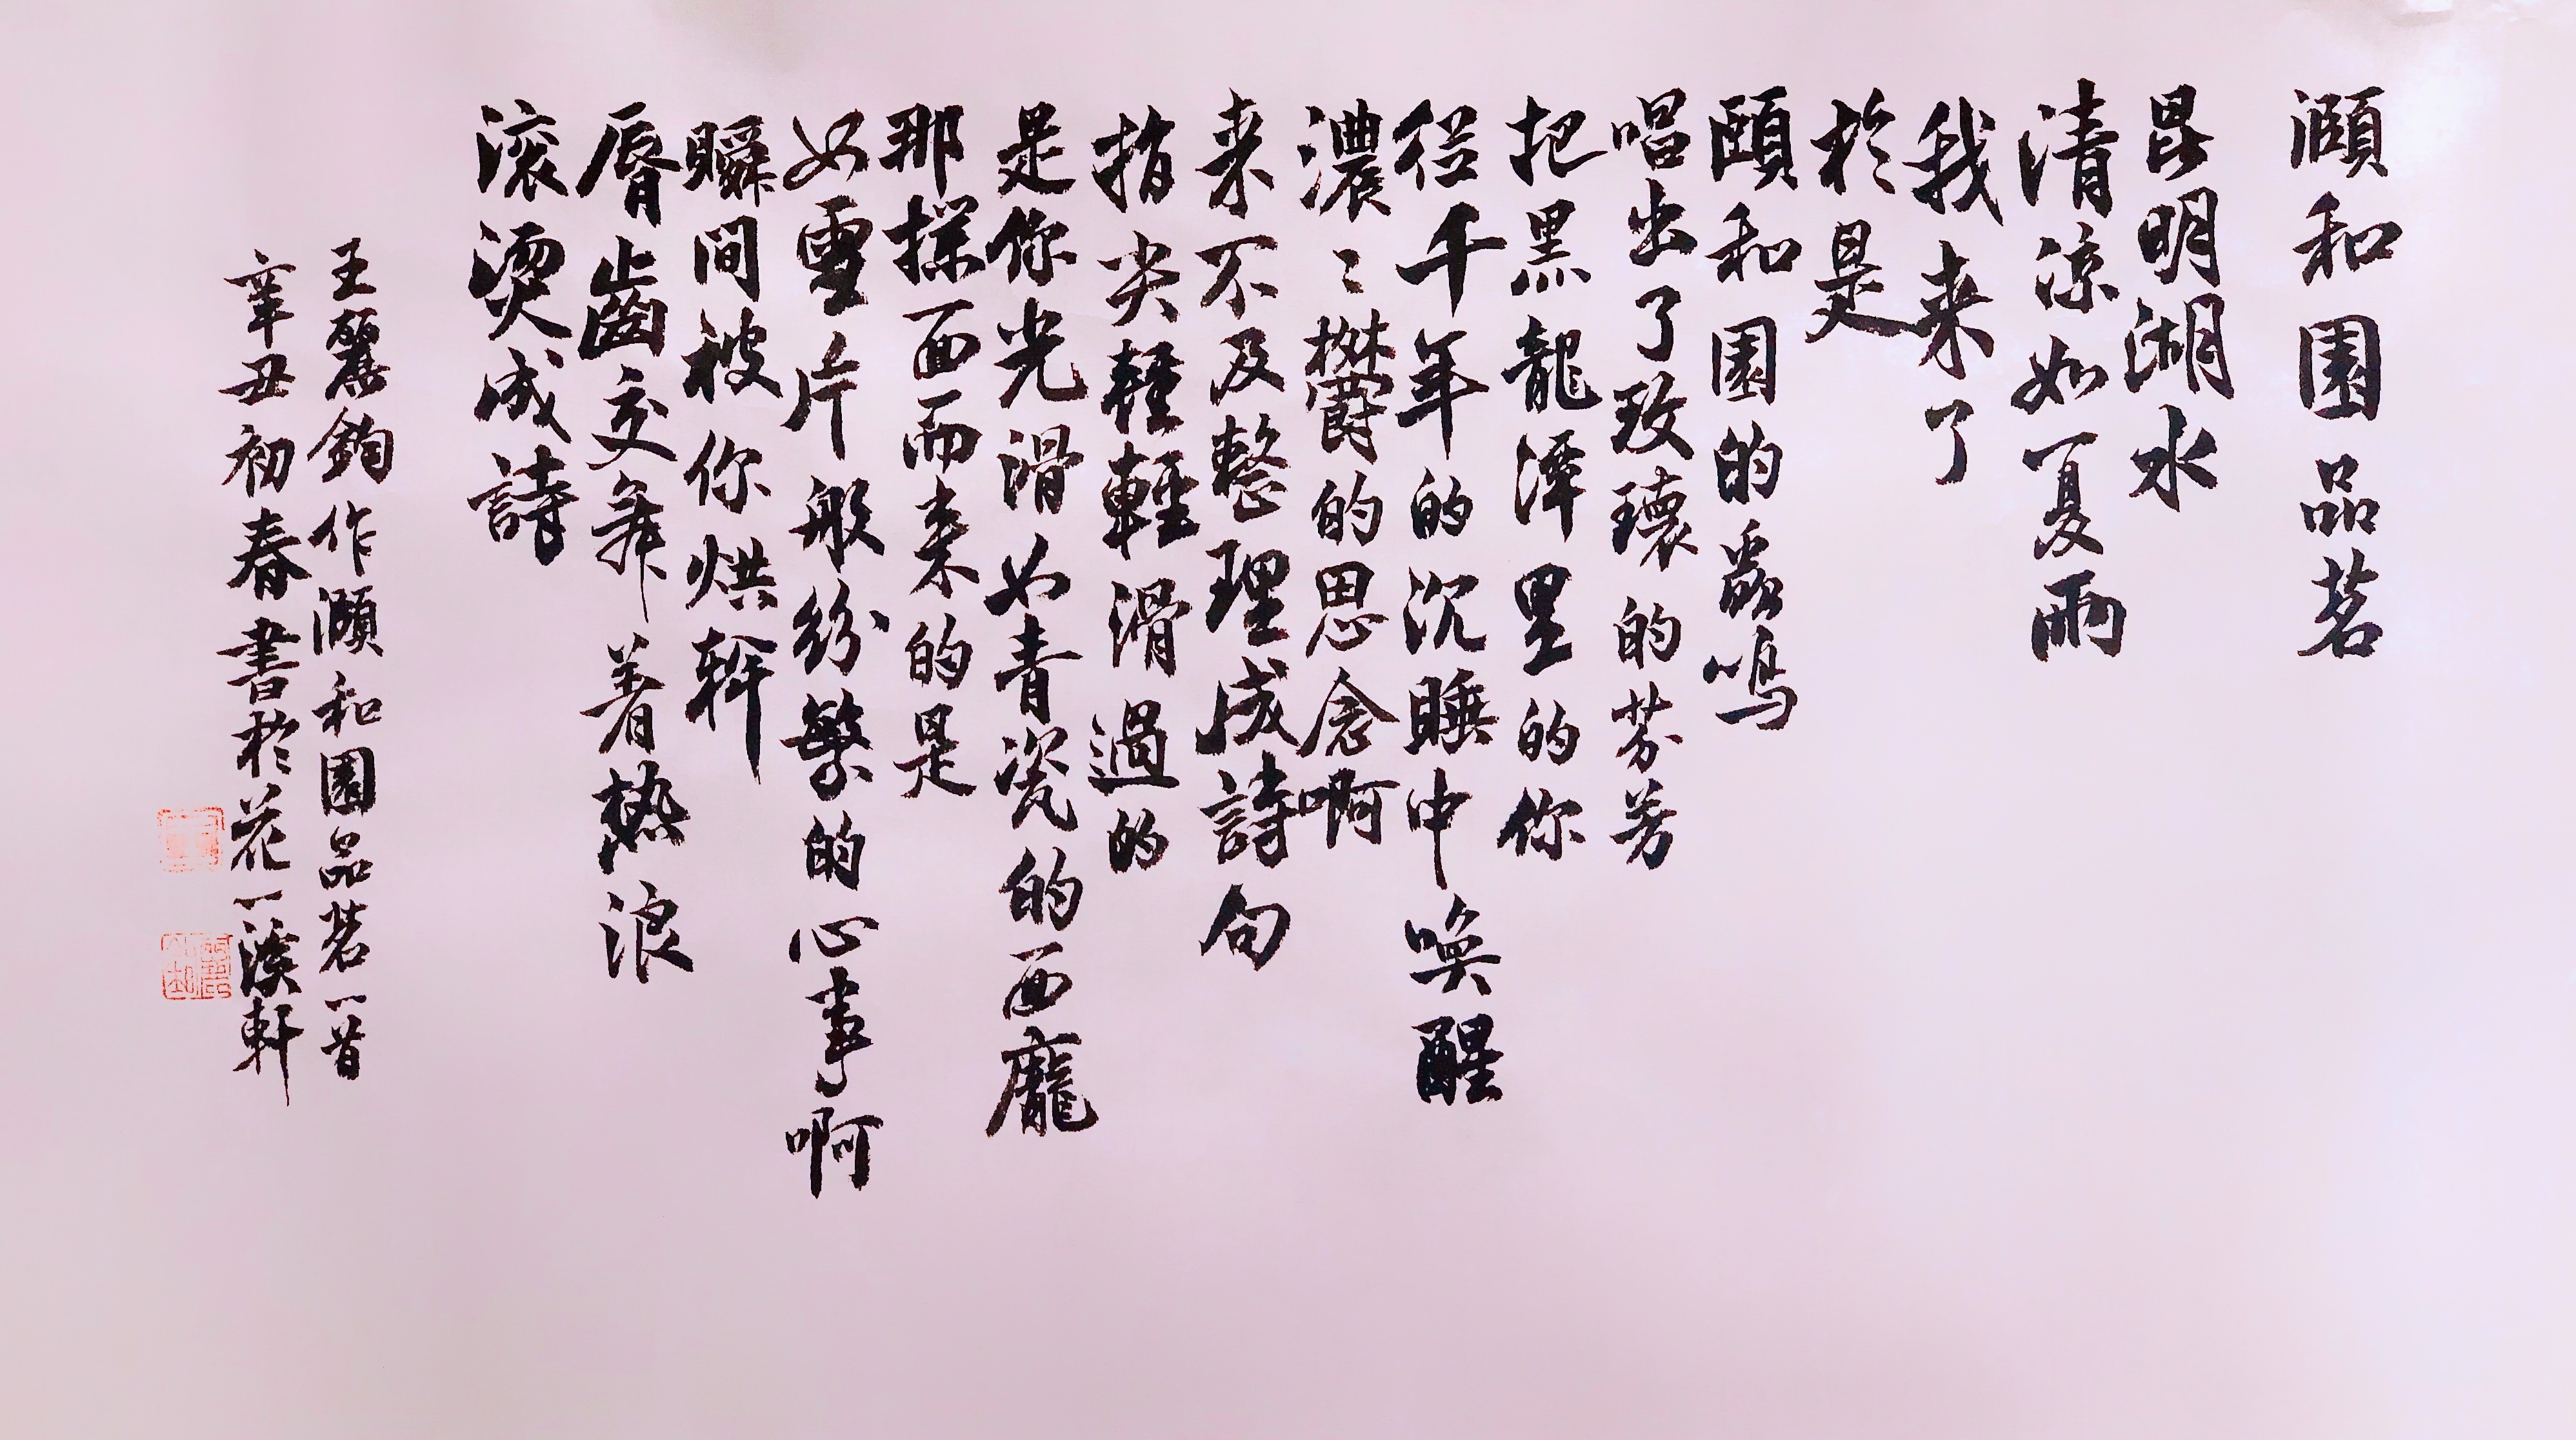 頤和園品茗
昆明湖水
清涼如夏雨
我来了
於是
頤和園的蟲鳴
唱出了玫瓌的芬芳
把黑龍潭里的你
從千年的沉睡中唤醒
濃〻欝的思念啊
来不及整理成詩句
指尖輕輕滑過的
是你光滑如青瓷的面龐
那撲面而来的是
如雪片般紛繁的心事啊
瞬間被你烘幹
唇齒交舞着热浪
滚燙成詩
王麗鈞作頤和園品茗一首
辛丑初春書於花一溪軒